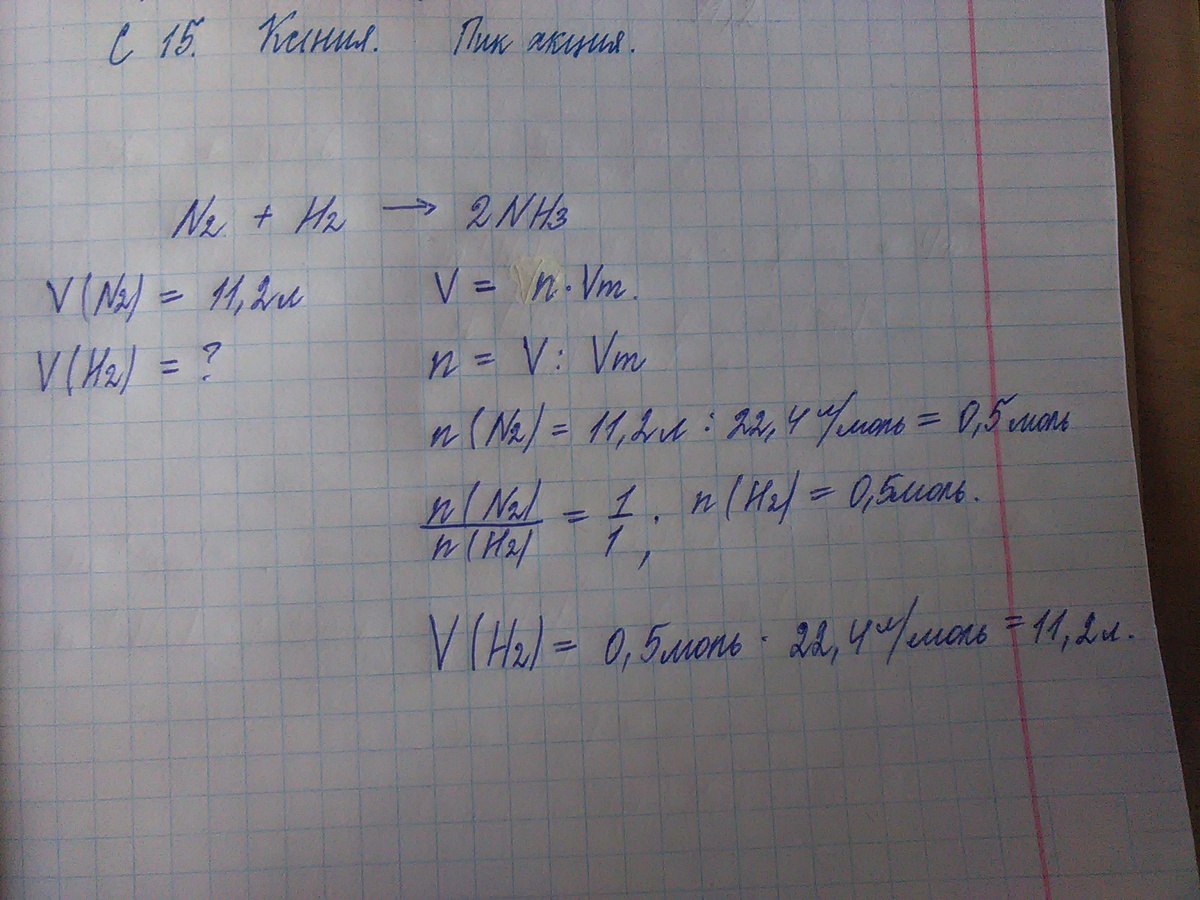 С 15. Ксения. Пик акция.
N2 + H2 → 2NH3
V(N2) = 11,2л
V = n·Vm.
V(H2) = ?
n = V : Vm
n(N2) = 11,2л : 22,4л/моль = 0,5моль
n(N2)/n(H2) = 1/1; n(H2) = 0,5моль.
V(H2) = 0,5моль · 22,4л/моль = 11,2л.